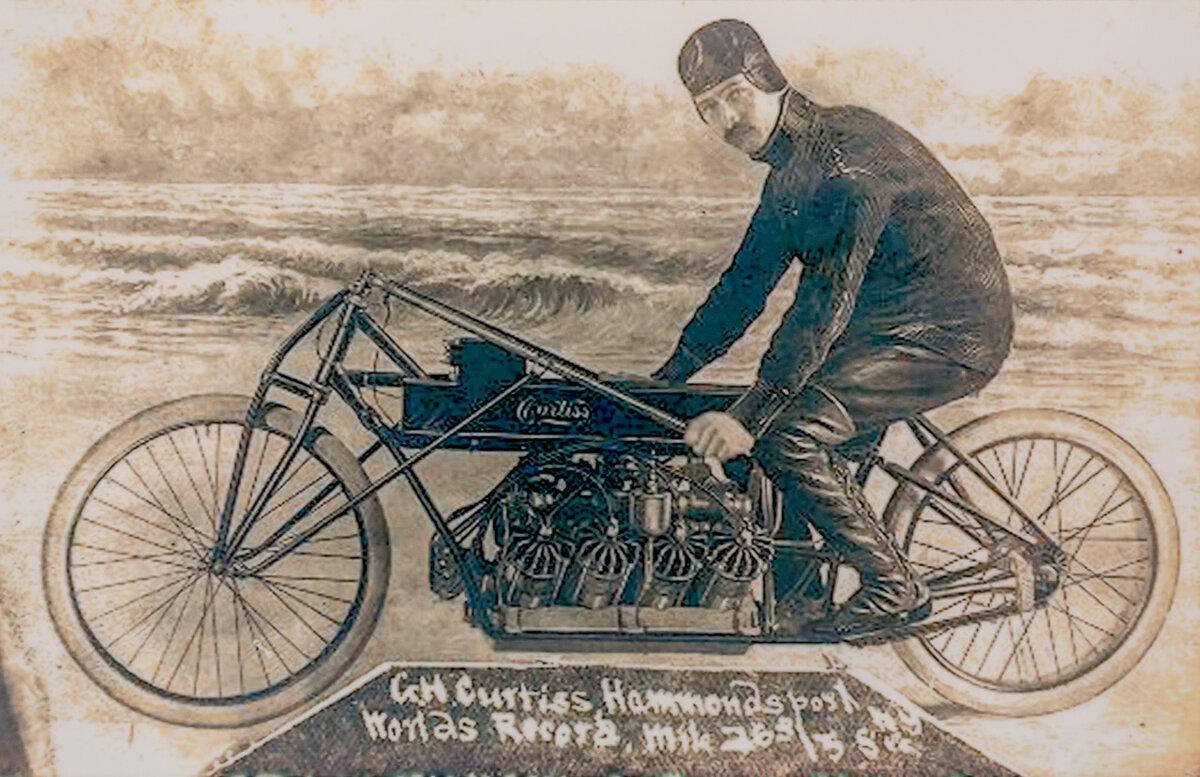 Curtiss
G.H. Curtiss Hammondsport N.Y
Worlds Record, Mile 26 3/5 Sec